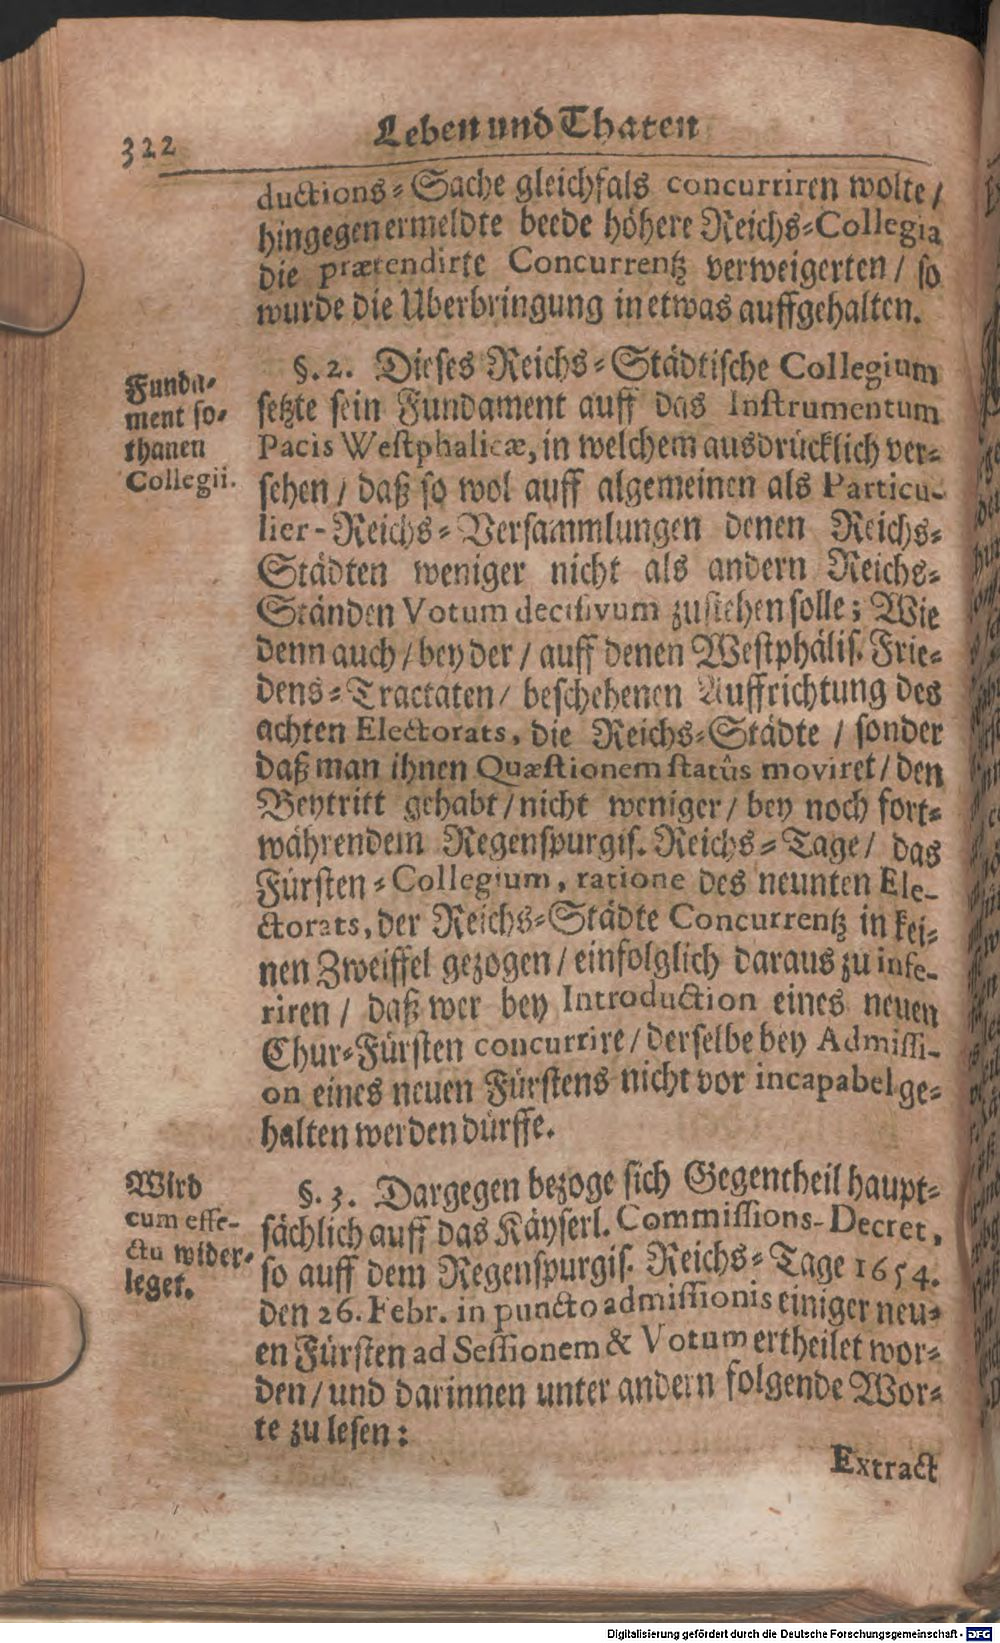 322
Leben und Thaten
ductions-Sache gleichfals concurriren wolte /
hingegen ermeldte beede höhere Reichs-Collegia
die prætendirte Concurrentz verweigerten / so
wurde die Uberbringung in etwas auffgehalten.
Funda-
ment so-
thanen
Collegii.
§. 2. Dieses Reichs-Städtische Collegium
setzte sein Fundament auff das Instrumentum
Pacis Westphalicæ, in welchem ausdrücklich ver-
sehen / daß so wol auff algemeinen als Particu-
lier-Reichs-Versammlungen denen Reichs-
Städten weniger nicht als andern Reichs-
Ständen Votum decisivum zustehen solle; Wie
denn auch / bey der / auff denen Westphälis. Frie-
dens-Tractaten / beschehenen Auffrichtung des
achten Electorats, die Reichs-Städte / sonder
daß man ihnen Quæstionem statûs moviret / den
Beytritt gehabt / nicht weniger / bey noch fort-
währendem Regenspurgis. Reichs-Tage / das
Fürsten-Collegium, ratione des neunten Ele-
ctorats, der Reichs-Städte Concurrentz in kei-
nen Zweiffel gezogen / einfolglich daraus zu infe-
riren / daß wer bey Introduction eines neuen
Chur-Fürsten concurrire / derselbe bey Admissi-
on eines neuen Fürstens nicht vor incapabel ge-
halten werden dürffe.
Wird
cum effe-
ctu wider-
leget.
§. 3. Dargegen bezoge sich Gegentheil haupt-
sächlich auff das Käyserl. Commissions-Decret,
so auff dem Regenspurgis. Reichs-Tage 1654.
den 26. Febr. in puncto admissionis einiger neu-
en Fürsten ad Sessionem & Votum ertheilet wor-
den / und darinnen unter andern folgende Wor-
te zu lesen:
Extract
Digitalisierung gefördert durch die Deutsche Forschungsgemeinschaft - DFG